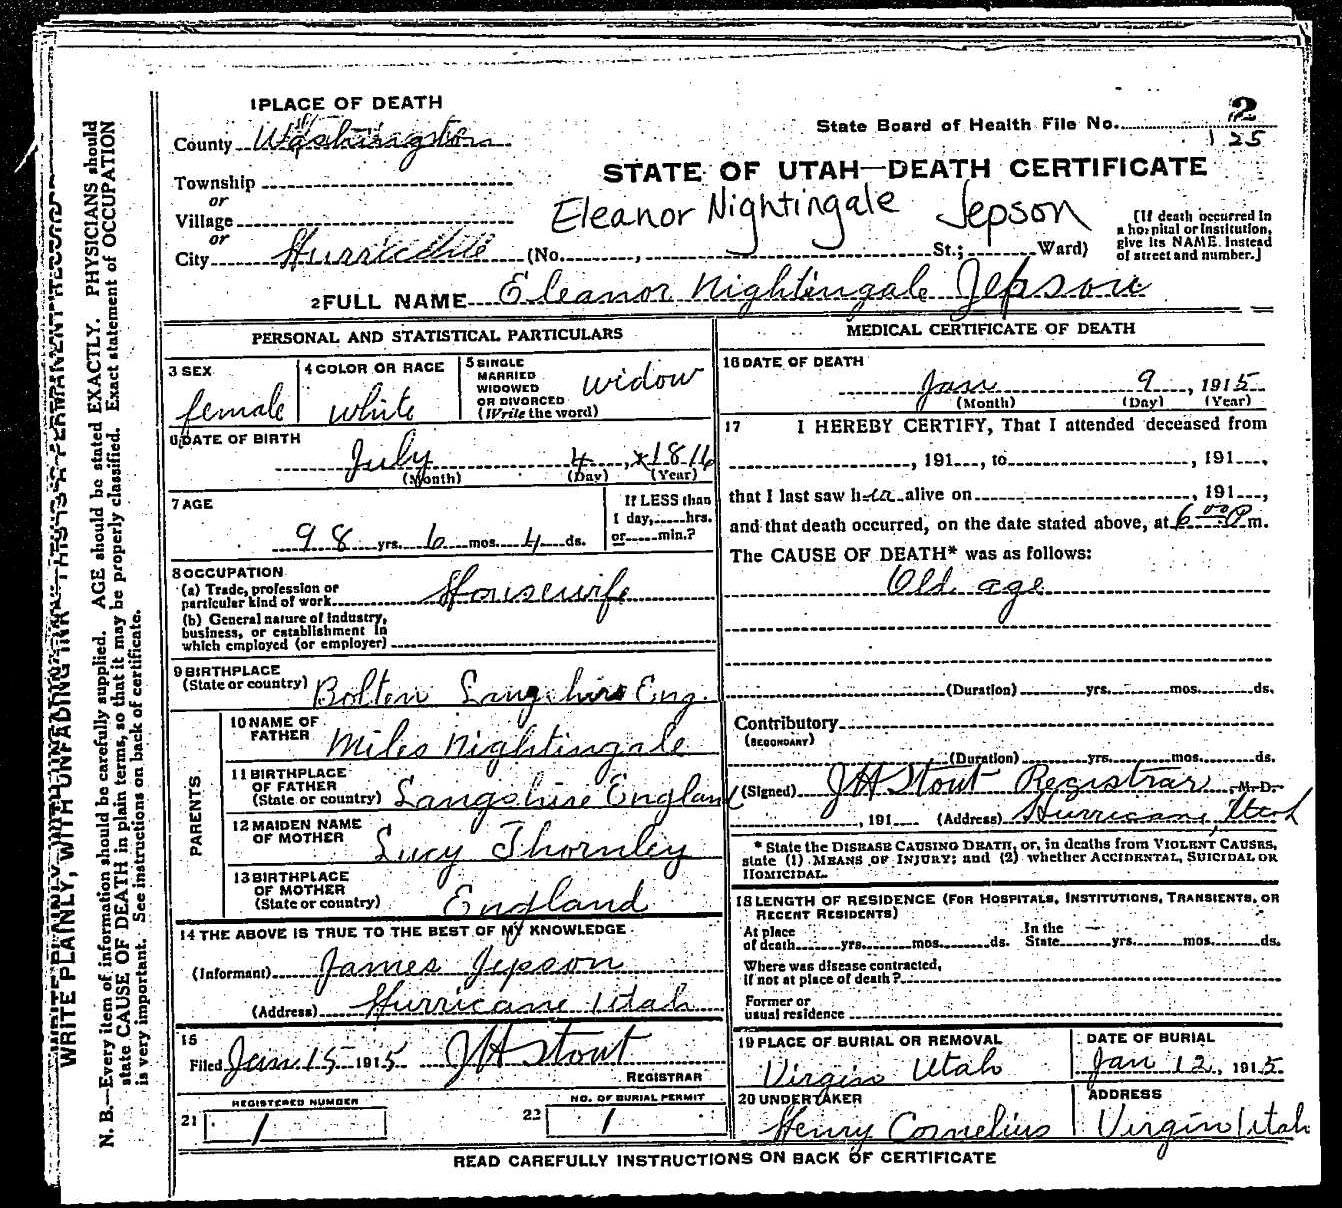 1 PLACE OF DEATH
County Washington
Township
or
Village
or
City Hurricane (No. , St.; Ward)
State Board of Health File No. 2
125
STATE OF UTAH—DEATH CERTIFICATE
Eleanor Nightingale Jepson
[If death occurred in
a hospital or institution,
give its NAME instead
of street and number.]
2 FULL NAME Eleanor Nightingale Jepson
PERSONAL AND STATISTICAL PARTICULARS
3 SEX
female
4 COLOR OR RACE
white
5 SINGLE
MARRIED
WIDOWED
OR DIVORCED
(Write the word)
widow
6 DATE OF BIRTH
July 4, 1816
(Month) (Day) (Year)
7 AGE
98 yrs. 6 mos. 4 ds.
If LESS than
1 day, hrs.
or min.?
8 OCCUPATION
(a) Trade, profession or
particular kind of work Housewife
(b) General nature of Industry,
business, or establishment in
which employed (or employer)
9 BIRTHPLACE
(State or country) Bolton Langshire Eng.
PARENTS
10 NAME OF
FATHER Miles Nightingale
11 BIRTHPLACE
OF FATHER
(State or country) Langshire England
12 MAIDEN NAME
OF MOTHER Lucy Thornley
13 BIRTHPLACE
OF MOTHER
(State or country) England
14 THE ABOVE IS TRUE TO THE BEST OF MY KNOWLEDGE
(Informant) James Jepson
(Address) Hurricane Utah
15
Filed Jan 15 1915 JH Stout
REGISTRAR
21 REGISTERED NUMBER
1
22 NO. OF BURIAL PERMIT
1
MEDICAL CERTIFICATE OF DEATH
16 DATE OF DEATH
Jan 9, 1915
(Month) (Day) (Year)
17 I HEREBY CERTIFY, That I attended deceased from
, 191 , to , 191 ,
that I last saw her alive on , 191 ,
and that death occurred, on the date stated above, at 6 00 P m.
The CAUSE OF DEATH* was as follows:
Old age
(Duration) yrs. mos. ds.
Contributory
(SECONDARY)
(Duration) yrs. mos. ds.
(Signed) JH Stout Registrar M. D.
, 191 (Address) Hurricane, Utah
* State the DISEASE CAUSING DEATH, or, in deaths from VIOLENT CAUSES,
state (1) MEANS OF INJURY; and (2) whether ACCIDENTAL, SUICIDAL OR
HOMICIDAL.
18 LENGTH OF RESIDENCE (FOR HOSPITALS, INSTITUTIONS, TRANSIENTS, OR
RECENT RESIDENTS)
At place
of death yrs. mos. ds.
In the
State yrs. mos. ds.
Where was disease contracted,
if not at place of death?
Former or
usual residence
19 PLACE OF BURIAL OR REMOVAL
Virgin Utah
DATE OF BURIAL
Jan 12, 1915
20 UNDERTAKER
Henry Cornelius
ADDRESS
Virgin Utah
READ CAREFULLY INSTRUCTIONS ON BACK OF CERTIFICATE
WRITE PLAINLY, WITH UNFADING INK—THIS IS A PERMANENT RECORD
N. B.—Every item of information should be carefully supplied. AGE should be stated EXACTLY. PHYSICIANS should
state CAUSE OF DEATH in plain terms, so that it may be properly classified. Exact statement of OCCUPATION
is very important. See instructions on back of certificate.